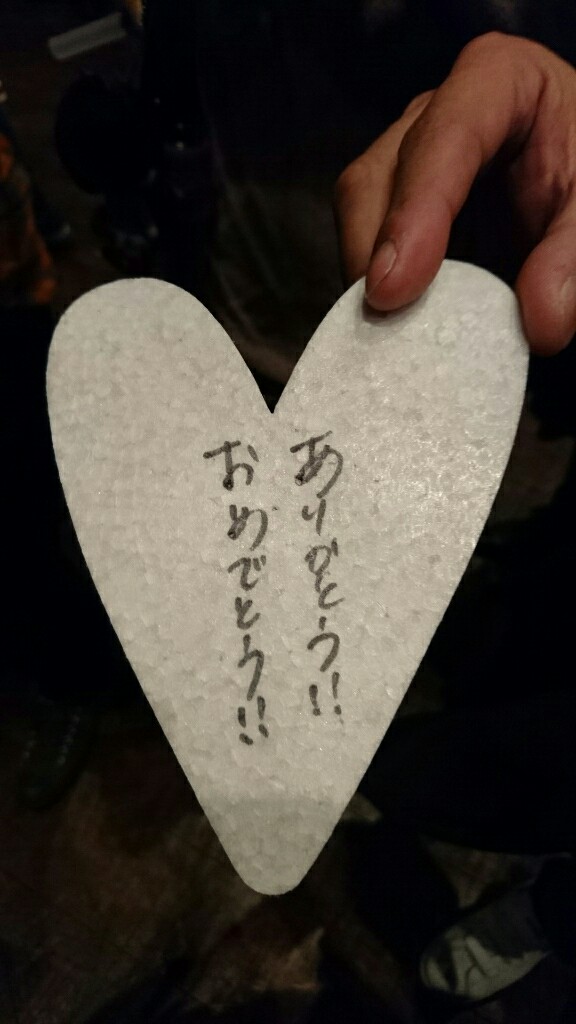 ありがとう!!
おめでとう!!